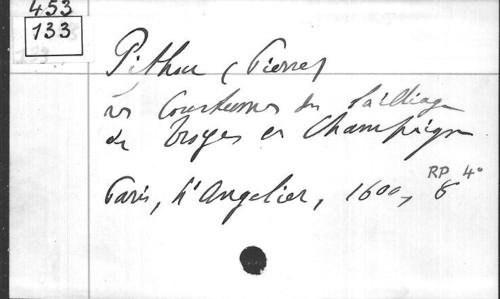 453
133
Pithou (Pierre)
Les Coustumes du bailliage
de Troyes en Champaigne
Paris, L'Angelier, 1600, 8°
RP 4°